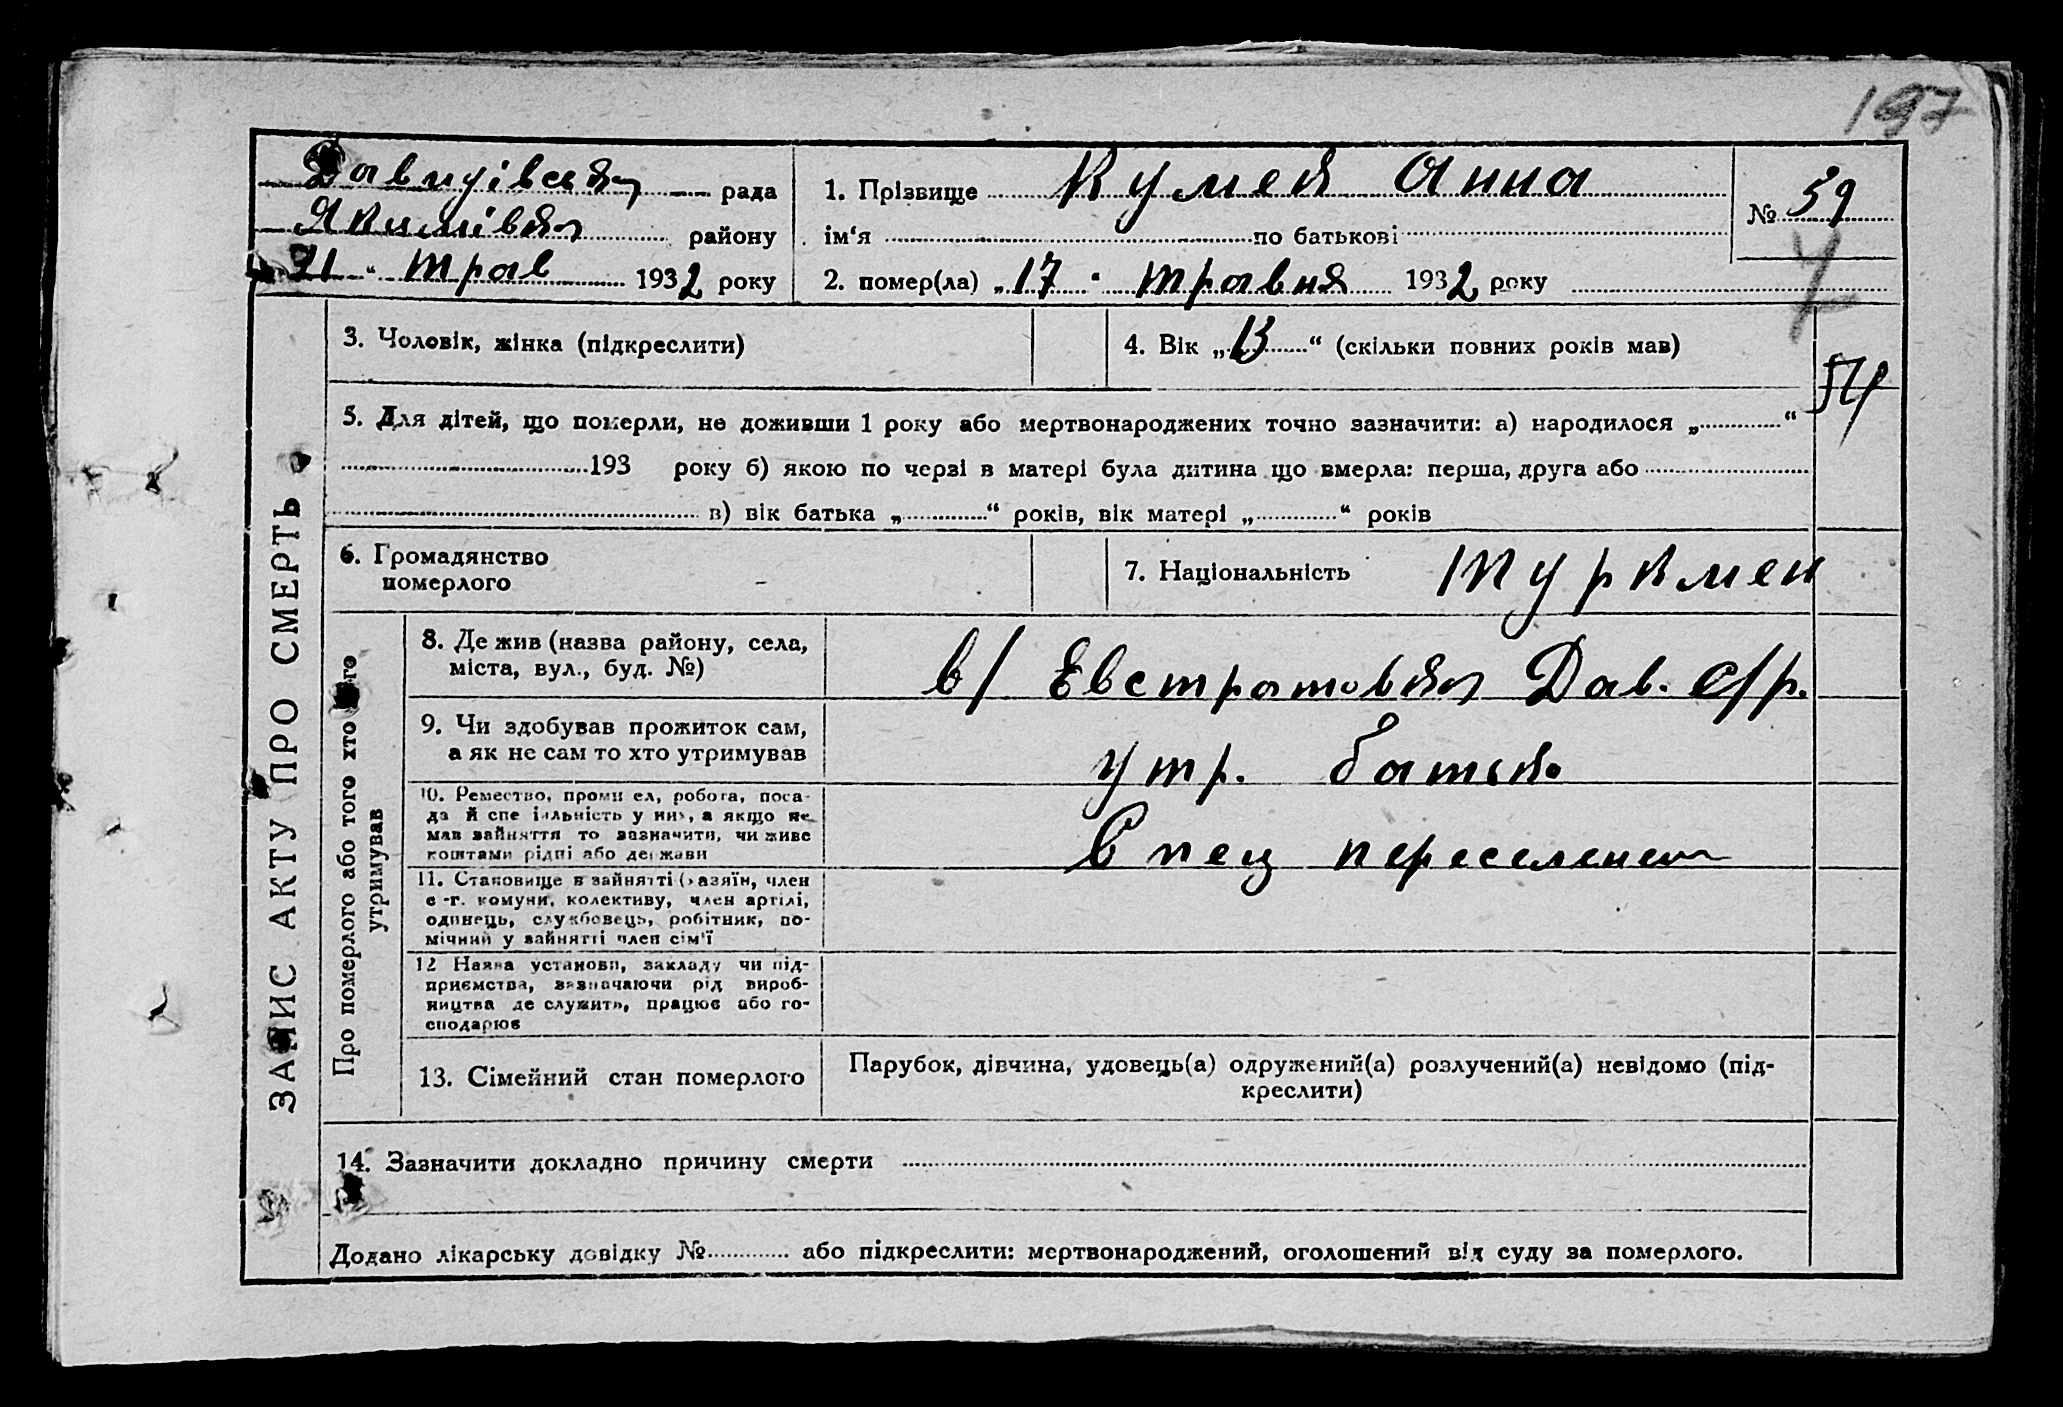 197
Давидівська рада
Якимівськ району
„21“ трав 1932 року
1. Прізвище Кумей Анна
ім‘я по батькові
2. помер(ла) „17“ травня 1932 року
№ 59
3. Чоловік, жінка (підкреслити)
4. Вік „13“ (скільки повних років мав)
5. Для дітей, що померли, не доживши 1 року або мертвонароджених точно зазначити: а) народилося „ “
193 року б) якою по черзі в матері була дитина що вмерла: перша, друга або
в) вік батька „ “ років, вік матері „ “ років
6. Громадянство
померлого -
7. Національність Туркмен
ЗАПИС АКТУ ПРО СМЕРТЬ
Про померлого або того хто його
утримував
8. Де жив (назва району, села,
міста, вул., буд. №)
в/ Евстратовка Дав. с/р.
9. Чи здобував прожиток сам,
а як не сам то хто утримував
утр. батько
10. Ремество, промисел, робота, поса-
да й спеціяльність у них, а якщо не
мав зайняття то зазначити, чи живе
коштами рідні або держави
Спец переселенец
11. Становище в зайнятті (хазяїн, член
с.-г. комуни, колективу, член артілі,
одинець, службовець, робітник, по-
мічний у зайнятті член сім‘ї
12 Назва установи, закладу чи під-
приємства, зазначаючи рід вироб-
ництва де служить, працює або го-
сподарює
13. Сімейний стан померлого
Парубок, дівчина, удовець(а) одружений(а) розлучений(а) невідомо (під-
креслити)
14. Зазначити докладно причину смерти
Додано лікарську довідку № або підкреслити: мертвонароджений, оголошений від суду за померлого.